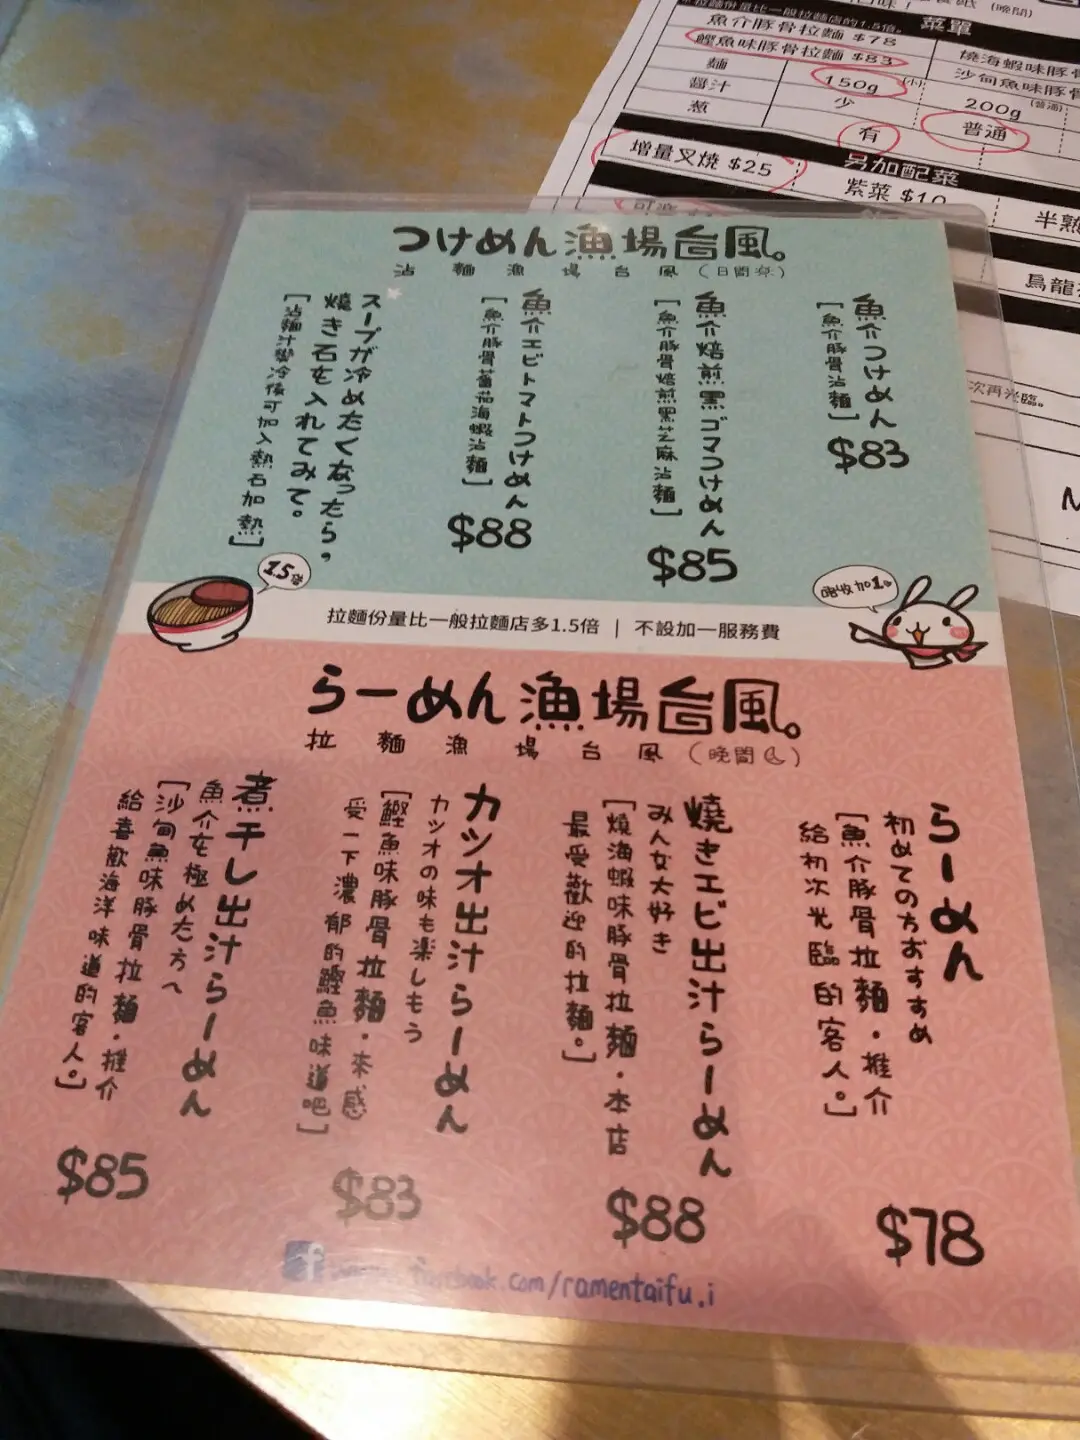 (晚間)
※拉麵份量比一般拉麵店的1.5倍。
菜單
魚介豚骨拉麵 $78
鰹魚味豚骨拉麵 $83
燒海蝦味豚骨
沙甸魚味豚骨
麵
150g (小)
200g (普通)
醬汁
少
普通
葱
有
另加配菜
增量叉燒 $25
紫菜 $10
半熟
烏龍
次再光臨。
つけめん漁場台風。
沾麵漁場台風(日間)
魚介つけめん
[魚介豚骨沾麵]
$83
魚介焙煎黒ゴマつけめん
[魚介豚骨焙煎黑芝麻沾麵]
$85
魚介エビトマトつけめん
[魚介豚骨蕃茄海蝦沾麵]
$88
スープが冷めたくなったら,
燒き石を入れてみて。
[沾麵汁變冷後可加入熱石加熱]
1.5倍
拉麵份量比一般拉麵店多1.5倍 | 不設加一服務費
唔收加1。
らーめん漁場台風。
拉麵漁場台風(晚間)
らーめん
初めての方おすすめ
[魚介豚骨拉麵・推介
給初次光臨的客人。]
$78
燒きエビ出汁らーめん
みんな大好き
[燒海蝦味豚骨拉麵・本店
最受歡迎的拉麵。]
$88
カツオ出汁らーめん
カツオの味も楽しもう
[鰹魚味豚骨拉麵・來感
受一下濃郁的鰹魚味道吧]
$83
煮干し出汁らーめん
魚介を極めた方へ
[沙甸魚味豚骨拉麵・推介
給喜歡海洋味道的客人。]
$85
facebook.com/ramentaifu.i